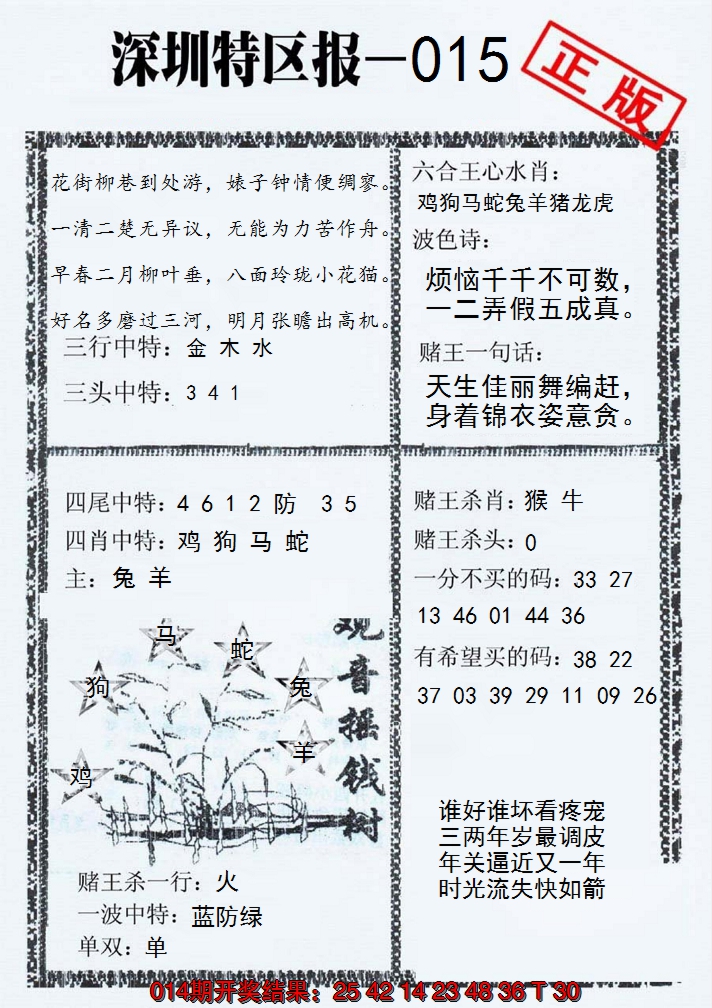 深圳特区报—015
正版
花街柳巷到处游，婊子钟情便绸寥。
一清二楚无异议，无能为力苦作舟。
早春二月柳叶垂，八面玲珑小花猫。
好名多磨过三河，明月张瞻出高机。
三行中特：金 木 水
三头中特：3 4 1
六合王心水肖：
鸡狗马蛇兔羊猪龙虎
波色诗：
烦恼千千不可数，
一二弄假五成真。
赌王一句话：
天生佳丽舞编赶，
身着锦衣姿意贪。
四尾中特：4 6 1 2 防 3 5
四肖中特：鸡 狗 马 蛇
主：兔 羊
马
蛇
狗
兔
羊
鸡
观音摇钱树
赌王杀一行：火
一波中特：蓝防绿
单双：单
赌王杀肖：猴 牛
赌王杀头：0
一分不买的码：33 27
13 46 01 44 36
有希望买的码：38 22
37 03 39 29 11 09 26
谁好谁坏看疼宠
三两年岁最调皮
年关逼近又一年
时光流失快如箭
014期开奖结果：25 42 14 23 48 36 T 30